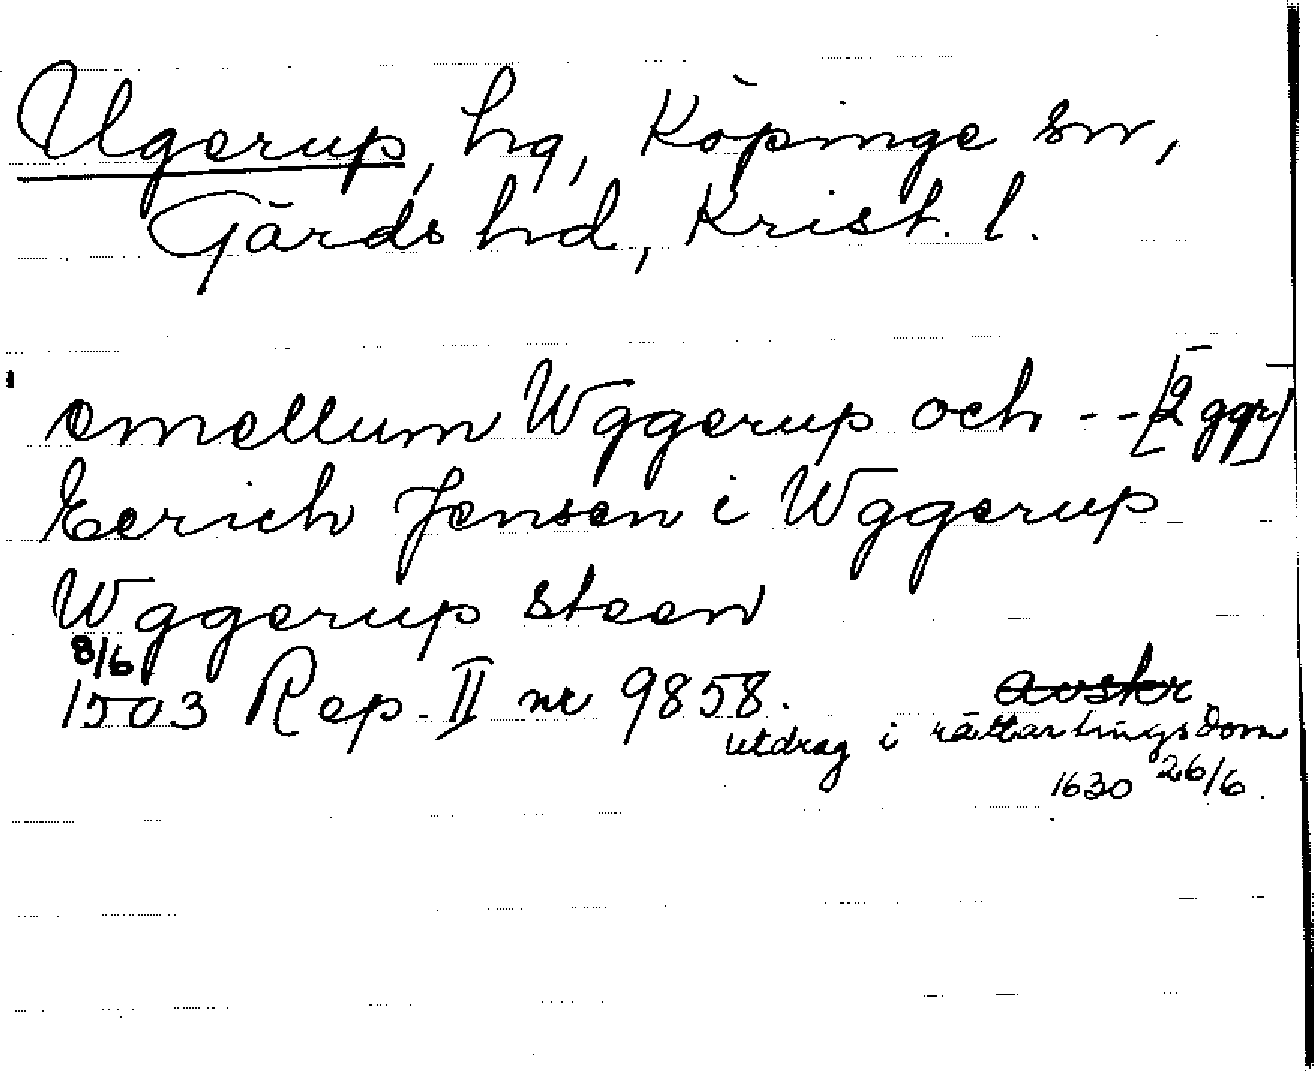 Ugerup, hg, Köpinge sn,
Gärds hd, Krist. l.
emellum Wggerup och -- [2 ggr]
Eerich Jensen i Wggerup
Wggerup steen
8/6
1503 Rep. II nr 9858. avskr.
utdrag i rättartingsdom
1630 26/6.